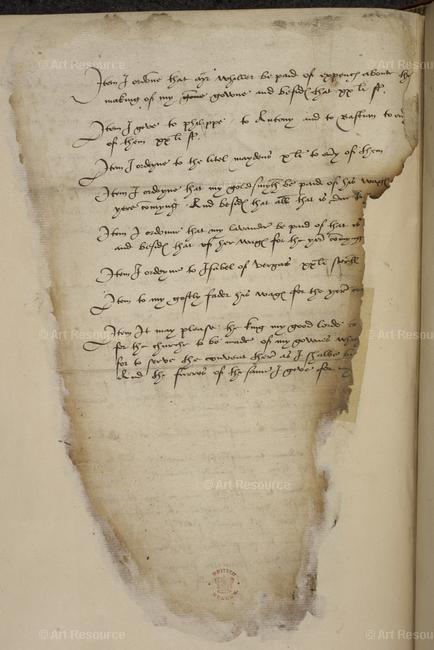 Item I ordone that mr Whiller be paid of expences about the
making of my gowne and besides that xx li st.
Item I give to philippe to Antony and to Bastian to eu
of them xx li st.
Item I ordeyne to the litel maydens x li to eny of them
Item I ordeyne that my goldsmyth be paid of his wage
yere comyng And besides that all that is due
Item I ordonne that my lavander be paid of that is
and besides that of her wages for the yere comyng
Item I ordeyne to Isabel of Vergas xx li sterll
Item to my gostly fader his wages for the yere
Item It may please the king my good lorde
for the churche to be made of my gownes whi
for to serve the convent ther as I shalbe
And the furres of the same I geve for my
BRITISH
© Art Resource
© Art Resource
© Art Resource
© Art Resource
© Art Resource
© Art Resource
© Art Resource